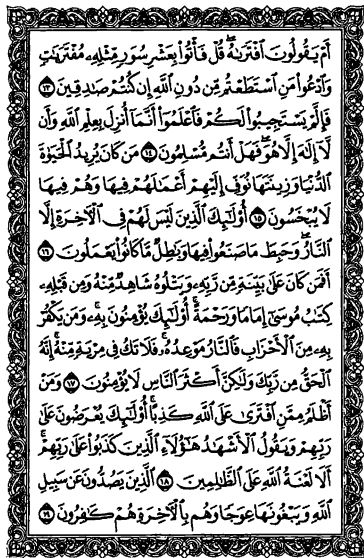 أَمۡ يَقُولُونَ ٱفۡتَرَىٰهُۖ قُلۡ فَأۡتُواْ بِعَشۡرِ سُوَرٖ مِّثۡلِهِۦ مُفۡتَرَيَٰتٖ
وَٱدۡعُواْ مَنِ ٱسۡتَطَعۡتُم مِّن دُونِ ٱللَّهِ إِن كُنتُمۡ صَٰدِقِينَ ١٣
فَإِلَّمۡ يَسۡتَجِيبُواْ لَكُمۡ فَٱعۡلَمُوٓاْ أَنَّمَآ أُنزِلَ بِعِلۡمِ ٱللَّهِ وَأَن
لَّآ إِلَٰهَ إِلَّا هُوَۖ فَهَلۡ أَنتُم مُّسۡلِمُونَ ١٤ مَن كَانَ يُرِيدُ ٱلۡحَيَوٰةَ
ٱلدُّنۡيَا وَزِينَتَهَا نُوَفِّ إِلَيۡهِمۡ أَعۡمَٰلَهُمۡ فِيهَا وَهُمۡ فِيهَا
لَا يُبۡخَسُونَ ١٥ أُوْلَٰٓئِكَ ٱلَّذِينَ لَيۡسَ لَهُمۡ فِي ٱلۡأٓخِرَةِ إِلَّا
ٱلنَّارُۖ وَحَبِطَ مَا صَنَعُواْ فِيهَا وَبَٰطِلٞ مَّا كَانُواْ يَعۡمَلُونَ ١٦
أَفَمَن كَانَ عَلَىٰ بَيِّنَةٖ مِّن رَّبِّهِۦ وَيَتۡلُوهُ شَاهِدٞ مِّنۡهُ وَمِن قَبۡلِهِۦ
كِتَٰبُ مُوسَىٰٓ إِمَامٗا وَرَحۡمَةًۚ أُوْلَٰٓئِكَ يُؤۡمِنُونَ بِهِۦۚ وَمَن يَكۡفُرۡ
بِهِۦ مِنَ ٱلۡأَحۡزَابِ فَٱلنَّارُ مَوۡعِدُهُۥۚ فَلَا تَكُ فِي مِرۡيَةٖ مِّنۡهُۚ إِنَّهُ
ٱلۡحَقُّ مِن رَّبِّكَ وَلَٰكِنَّ أَكۡثَرَ ٱلنَّاسِ لَا يُؤۡمِنُونَ ١٧ وَمَنۡ
أَظۡلَمُ مِمَّنِ ٱفۡتَرَىٰ عَلَى ٱللَّهِ كَذِبًاۚ أُوْلَٰٓئِكَ يُعۡرَضُونَ عَلَىٰ
رَبِّهِمۡ وَيَقُولُ ٱلۡأَشۡهَٰدُ هَٰٓؤُلَآءِ ٱلَّذِينَ كَذَبُواْ عَلَىٰ رَبِّهِمۡۚ
أَلَا لَعۡنَةُ ٱللَّهِ عَلَى ٱلظَّٰلِمِينَ ١٨ ٱلَّذِينَ يَصُدُّونَ عَن سَبِيلِ
ٱللَّهِ وَيَبۡغُونَهَا عِوَجٗا وَهُم بِٱلۡأٓخِرَةِ هُمۡ كَٰفِرُونَ ١٩